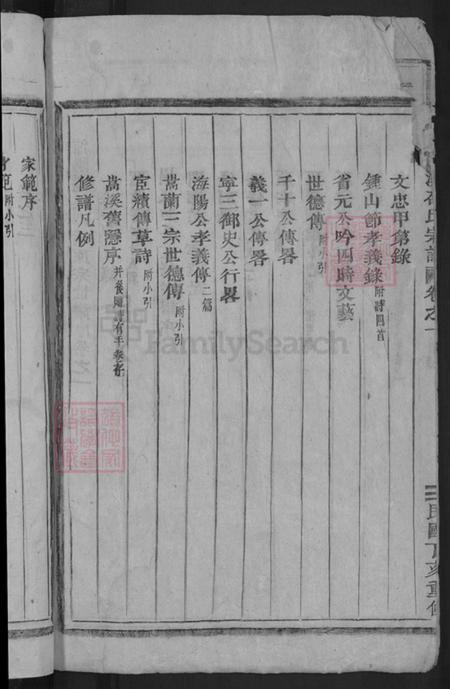 文忠甲第錄
鍾山節孝義錄 附詩四首
省元公吟四時文藝
世德傳 附小引
千十公傳畧
義一公傳畧
寧三御史公行畧
海陽公孝義傳 二篇
嵩蘭三宗世德傳 附小引
宦績傳草詩 附小引
嵩溪舊隱序
修譜凡例
家範序
附小引
氏宗譜 卷之一
民國丁亥重修
FamilySearch